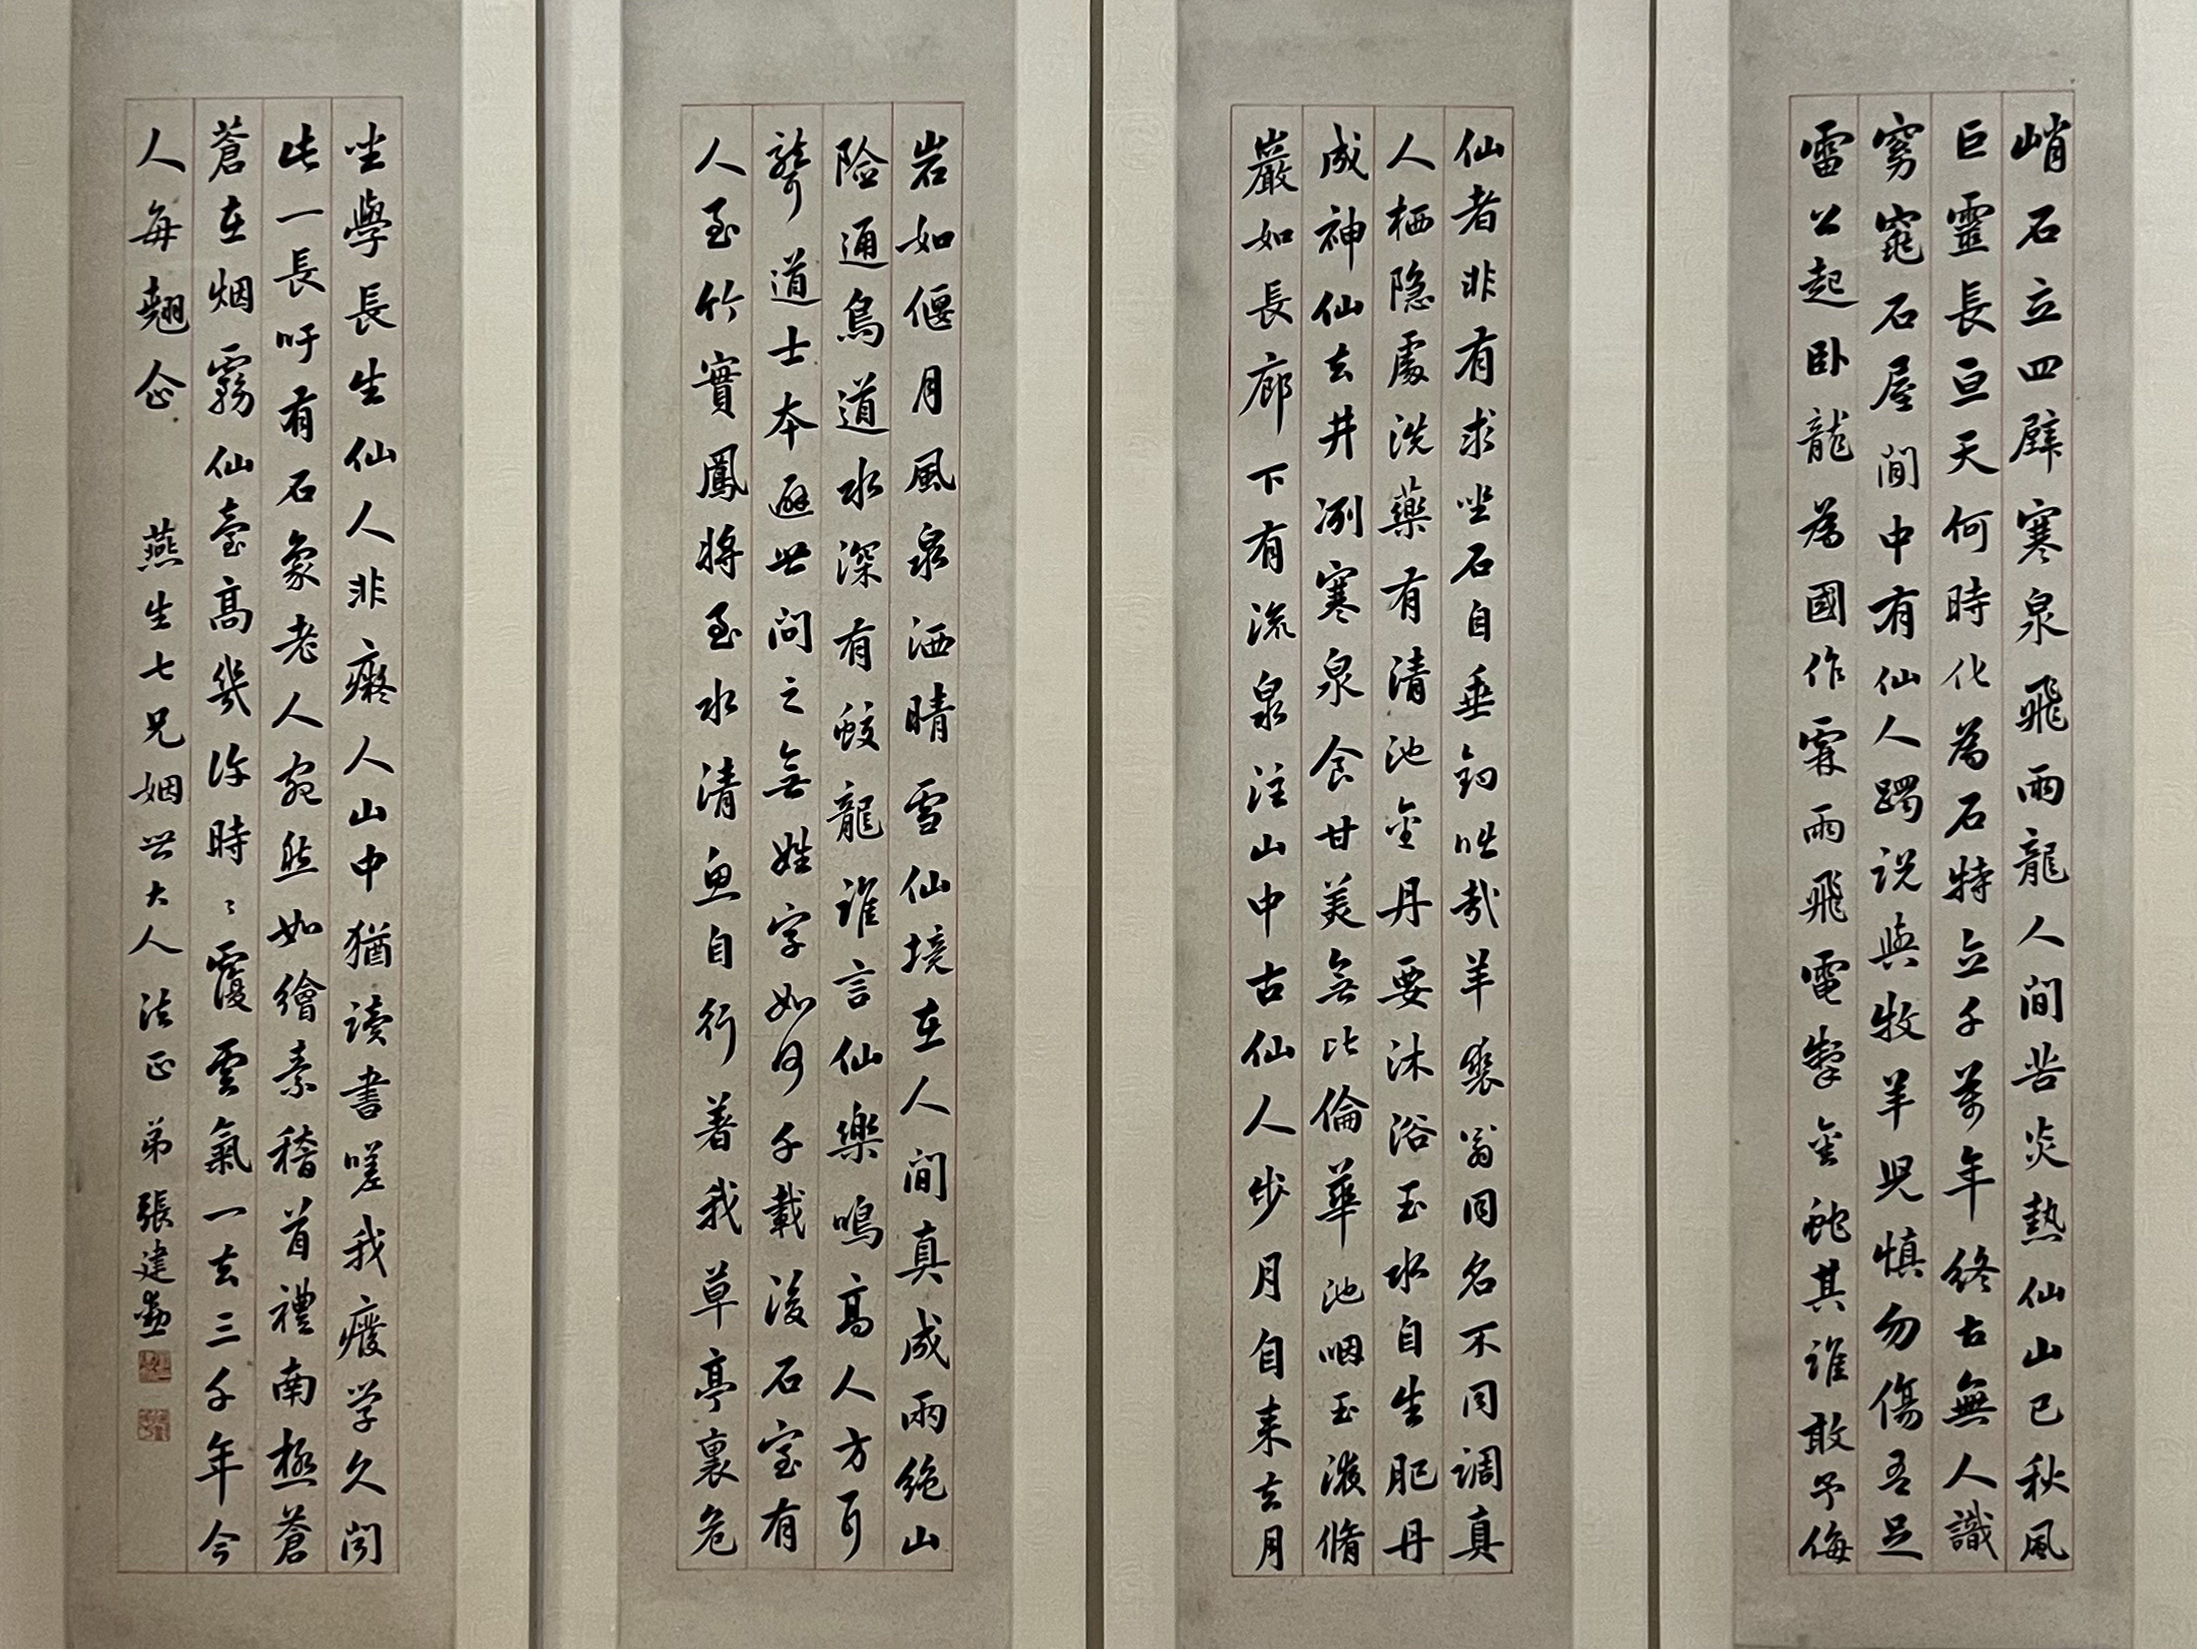 峭石立四壁寒泉飛兩龍人間苦炎熱仙山已秋風
巨靈長亘天何時化為石特立千萬年終古無人識
窈窕石屋間中有仙人躅說與牧羊兒慎勿傷吾足
雷公起卧龍為國作霖雨飛電掣金蛇其誰敢予侮
仙者非有求坐石自垂釣咄哉羊裘翁同名不同調真
人栖隐處洗藥有清池金丹要沐浴玉水自生肥丹
成神仙去井冽寒泉食甘美無比倫華池咽玉液脩
巖如長廊下有流泉注山中古仙人步月自来去月
岩如偃月風泉洒晴雪仙境在人間真成兩絶山
险通鳥道水深有蛟龍誰言仙樂鳴高人方耳
聾道士本避世問之無姓字如何千載後石室有
人至竹實鳳將至水清魚自行著我草亭裏危
坐學長生仙人非癡人山中猶读書嗟我癈学久闻
此一長吁有石象老人宛然如繪素稽首禮南極蒼
蒼在烟霧仙臺高幾许時﹦覆雲氣一去三千年今
人每翹企
燕生七兄姻世大人法正 弟張建勳